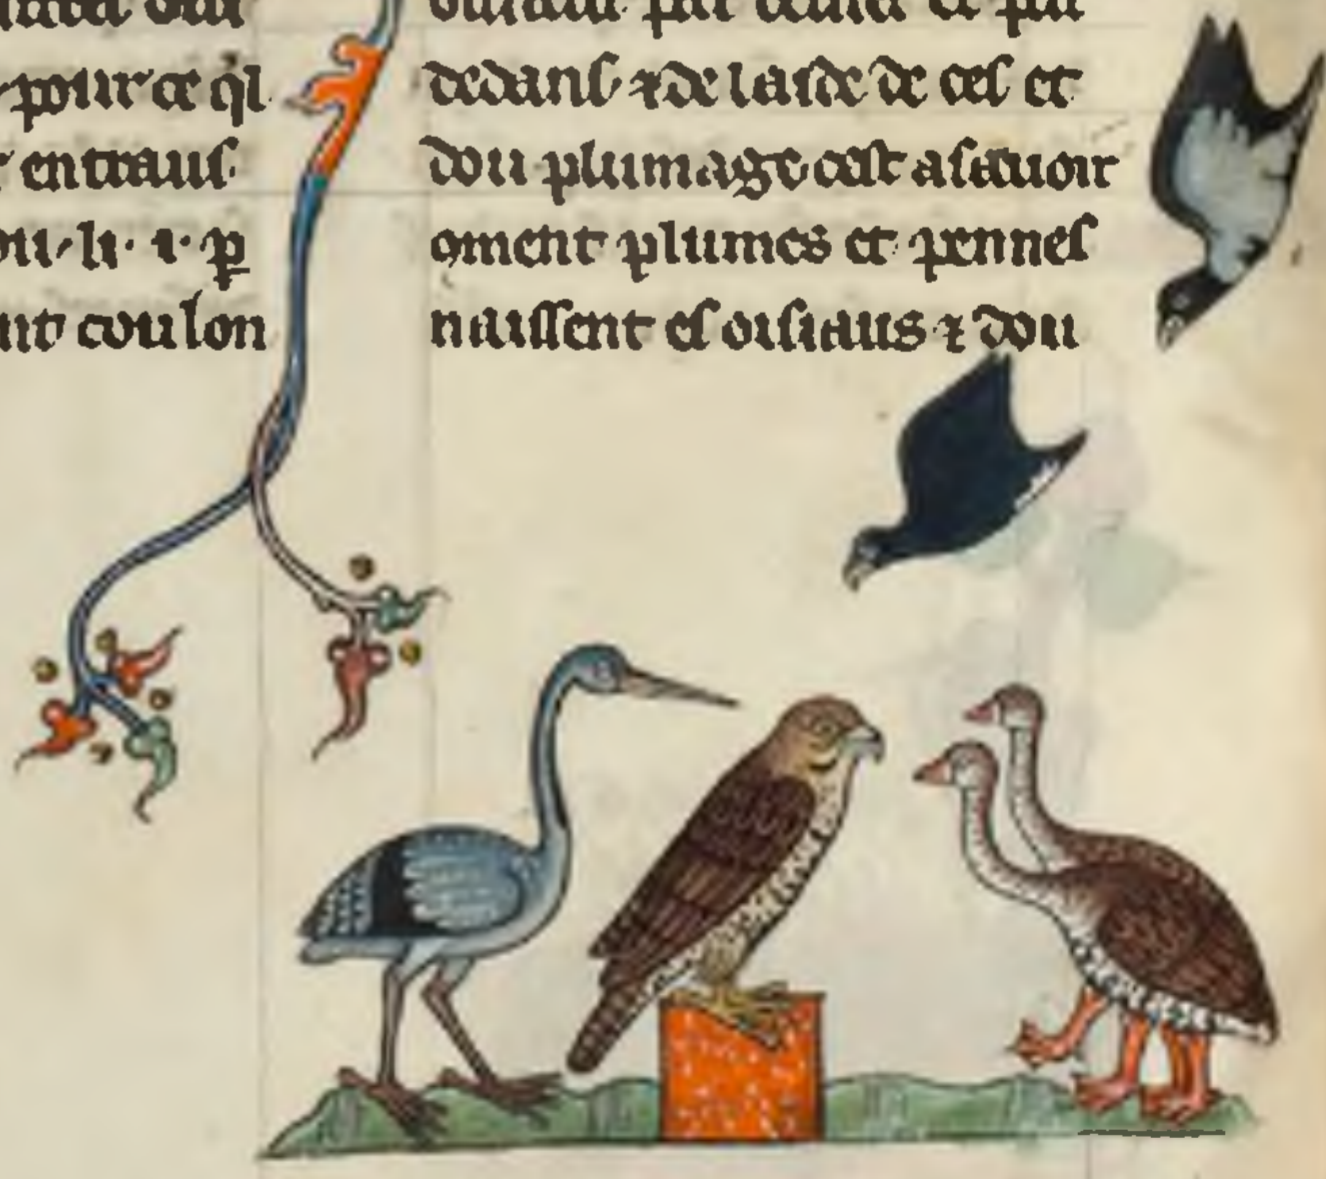 pour ce ql
entraus
ou · li · i · p
coulon
dedans ⁊ de laide de ces et
dou plumage cest asauoir
oment plumes et pennes
naissent es oisiaus ⁊ dou